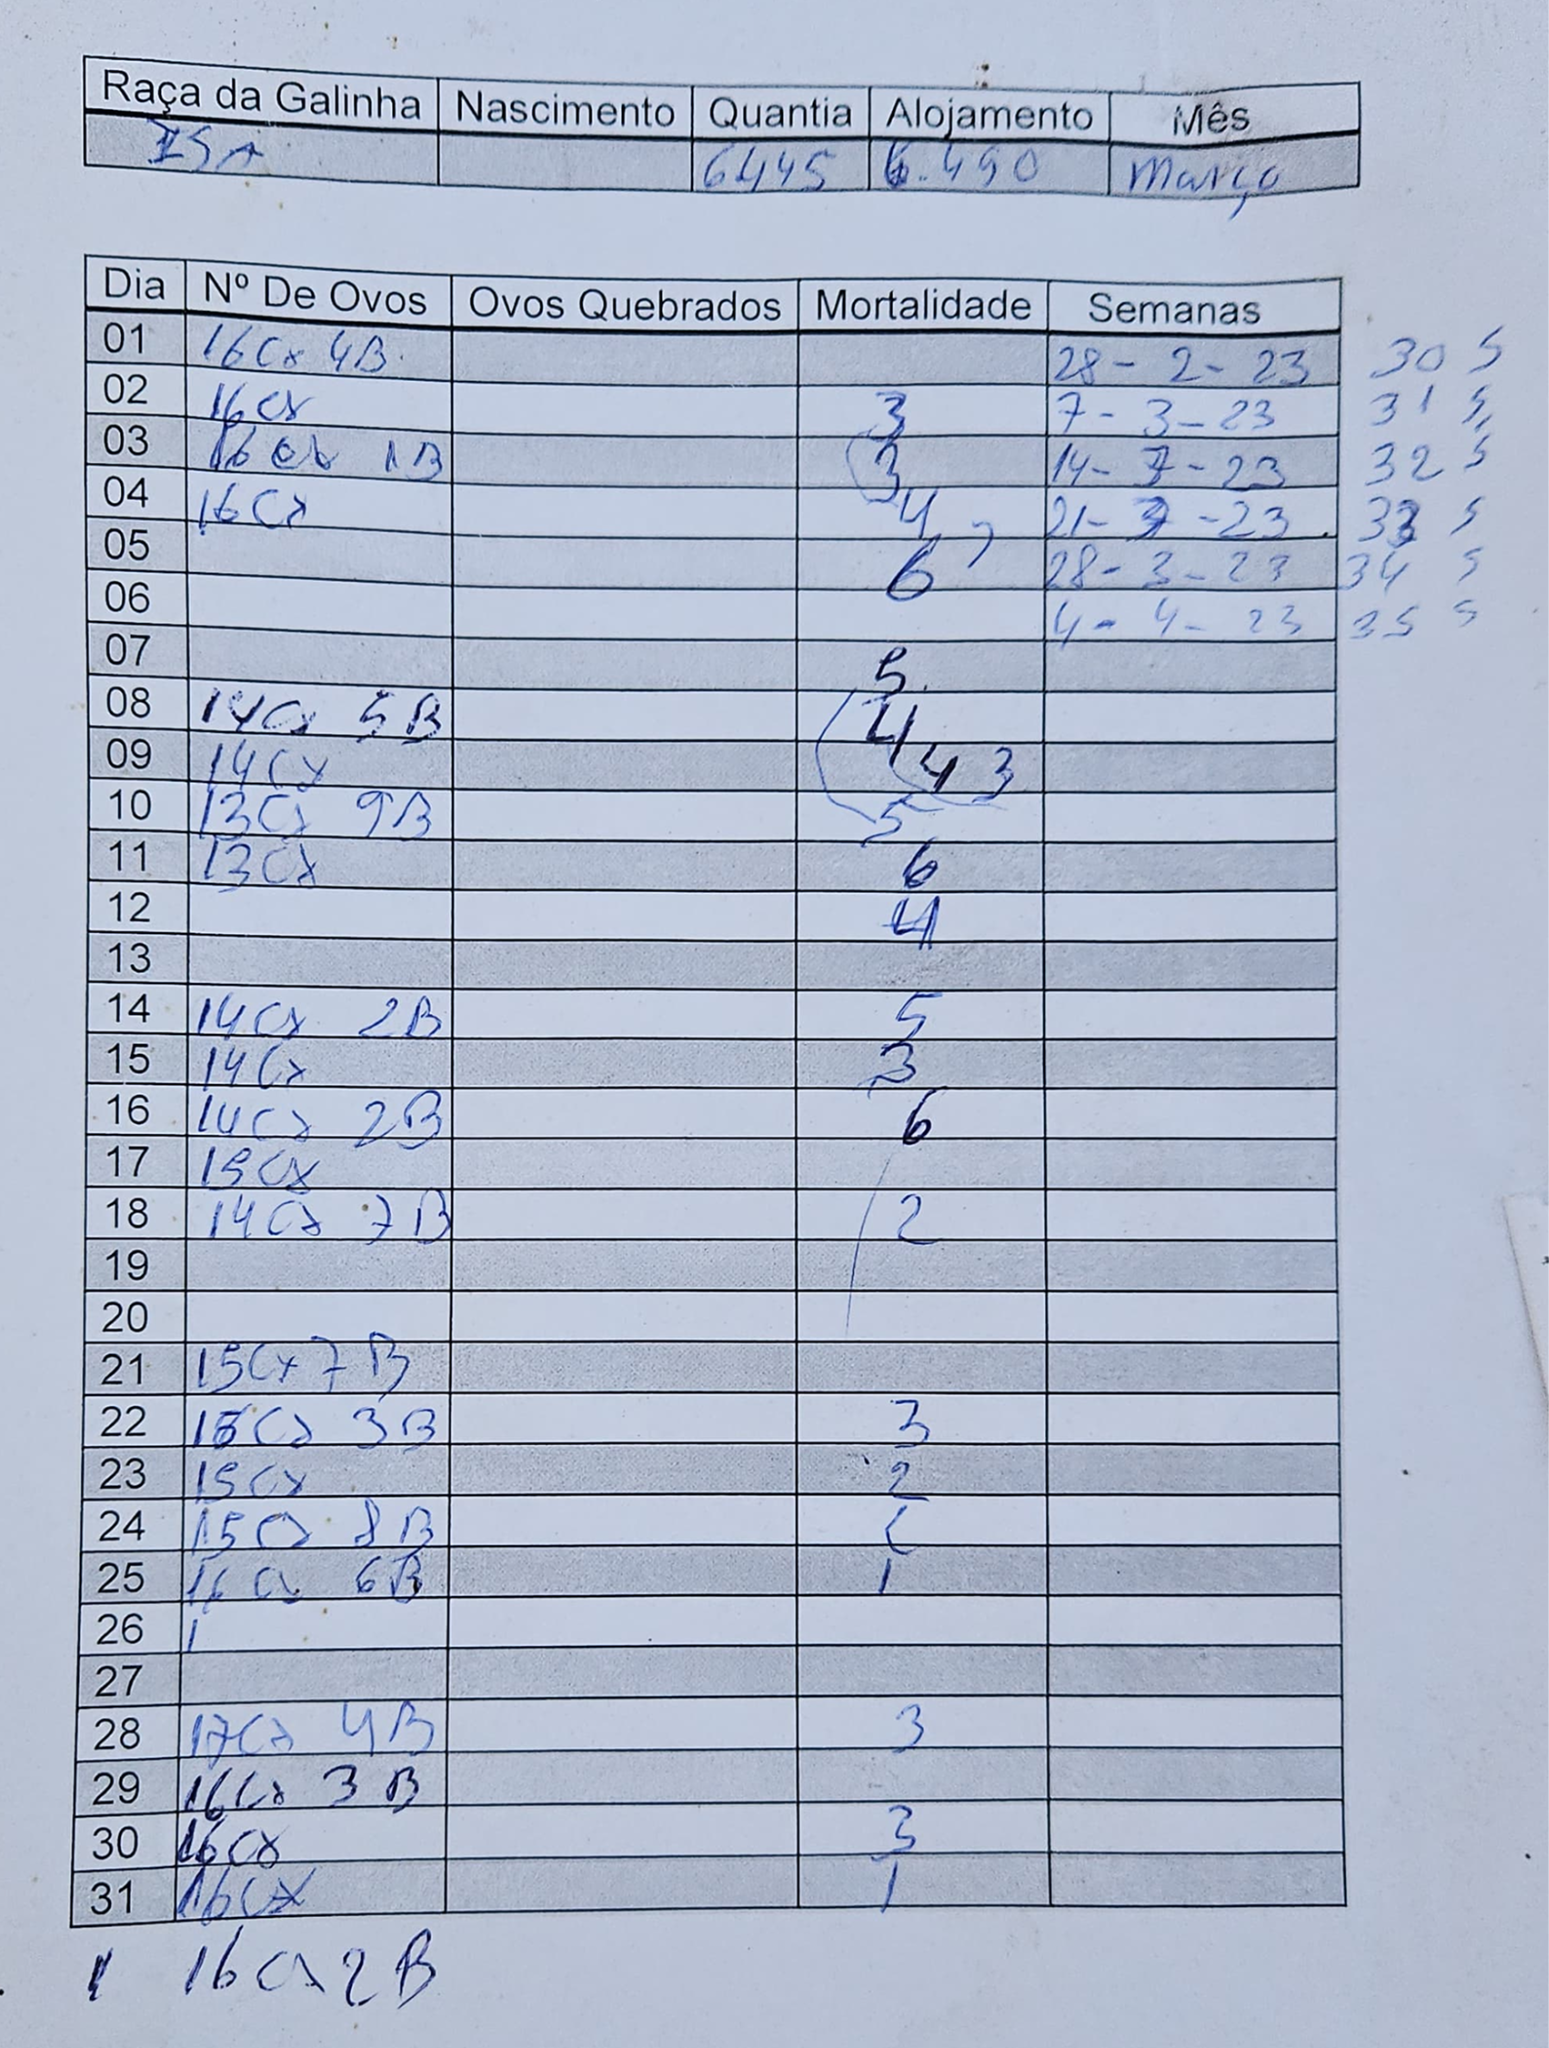 Raça da Galinha Nascimento Quantia Alojamento Mês
ISA 6445 6.490 Março
Dia Nº De Ovos Ovos Quebrados Mortalidade Semanas
01 16Cx 4B 28-2-23 30 S
02 16Cx 3 7-3-23 31 S
03 16Cx 1B 3 14-3-23 32 S
04 16Cx 4 21-3-23 33 S
05 6 28-3-23 34 S
06 4-4-23 35 S
07 5
08 14Cx 5B 4
09 14Cx 4 3
10 13Cx 9B 5
11 13Cx 6
12 4
13
14 14Cx 2B 5
15 14Cx 3
16 14Cx 2B 6
17 15Cx
18 14Cx 7B 2
19
20
21 15Cx 7B
22 15Cx 3B 3
23 15Cx 2
24 15Cx 8B
25 16Cx 6B 1
26 1
27
28 17Cx 4B 3
29 16Cx 3B
30 16Cx 3
31 16Cx 1
1 16Cx 2B